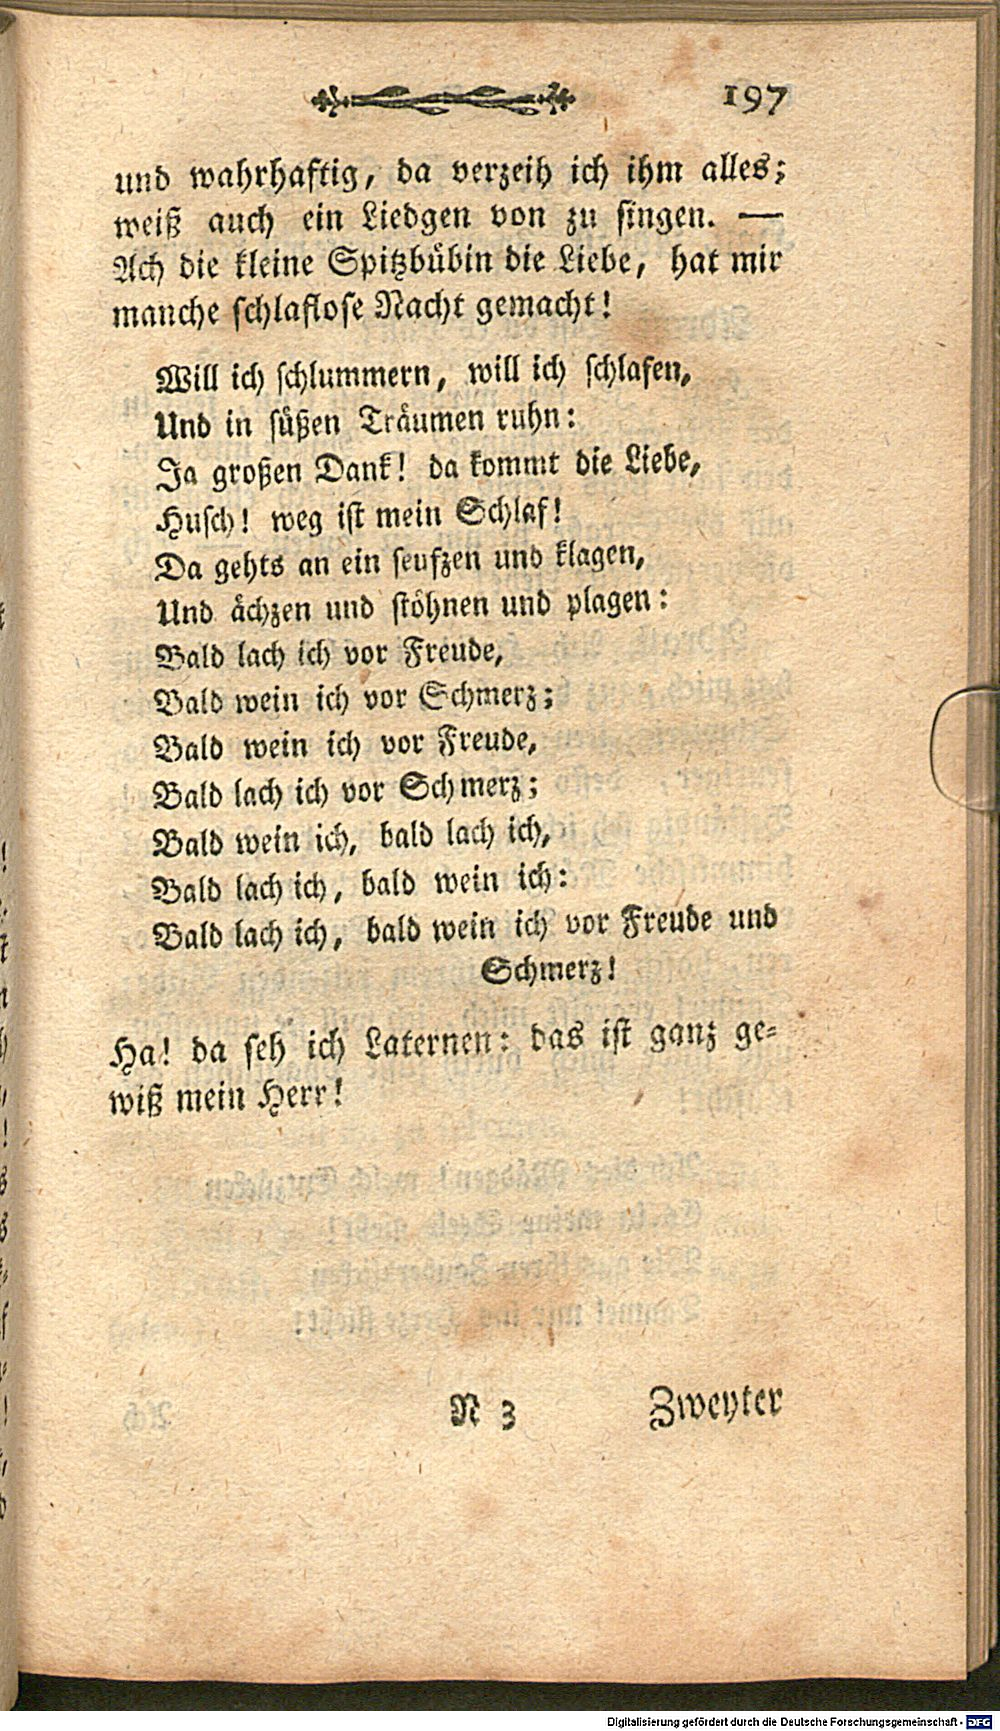 197
und wahrhaftig, da verzeih ich ihm alles;
weiß auch ein Liedgen von zu singen. —
Ach die kleine Spitzbübin die Liebe, hat mir
manche schlaflose Nacht gemacht!
Will ich schlummern, will ich schlafen,
Und in süßen Träumen ruhn:
Ja großen Dank! da kommt die Liebe,
Husch! weg ist mein Schlaf!
Da gehts an ein seufzen und klagen,
Und ächzen und stöhnen und plagen:
Bald lach ich vor Freude,
Bald wein ich vor Schmerz;
Bald wein ich vor Freude,
Bald lach ich vor Schmerz;
Bald wein ich, bald lach ich,
Bald lach ich, bald wein ich:
Bald lach ich, bald wein ich vor Freude und
Schmerz!
Ha! da seh ich Laternen: das ist ganz ge-
wiß mein Herr!
N 3 Zweyter
Digitalisierung gefördert durch die Deutsche Forschungsgemeinschaft - DFG